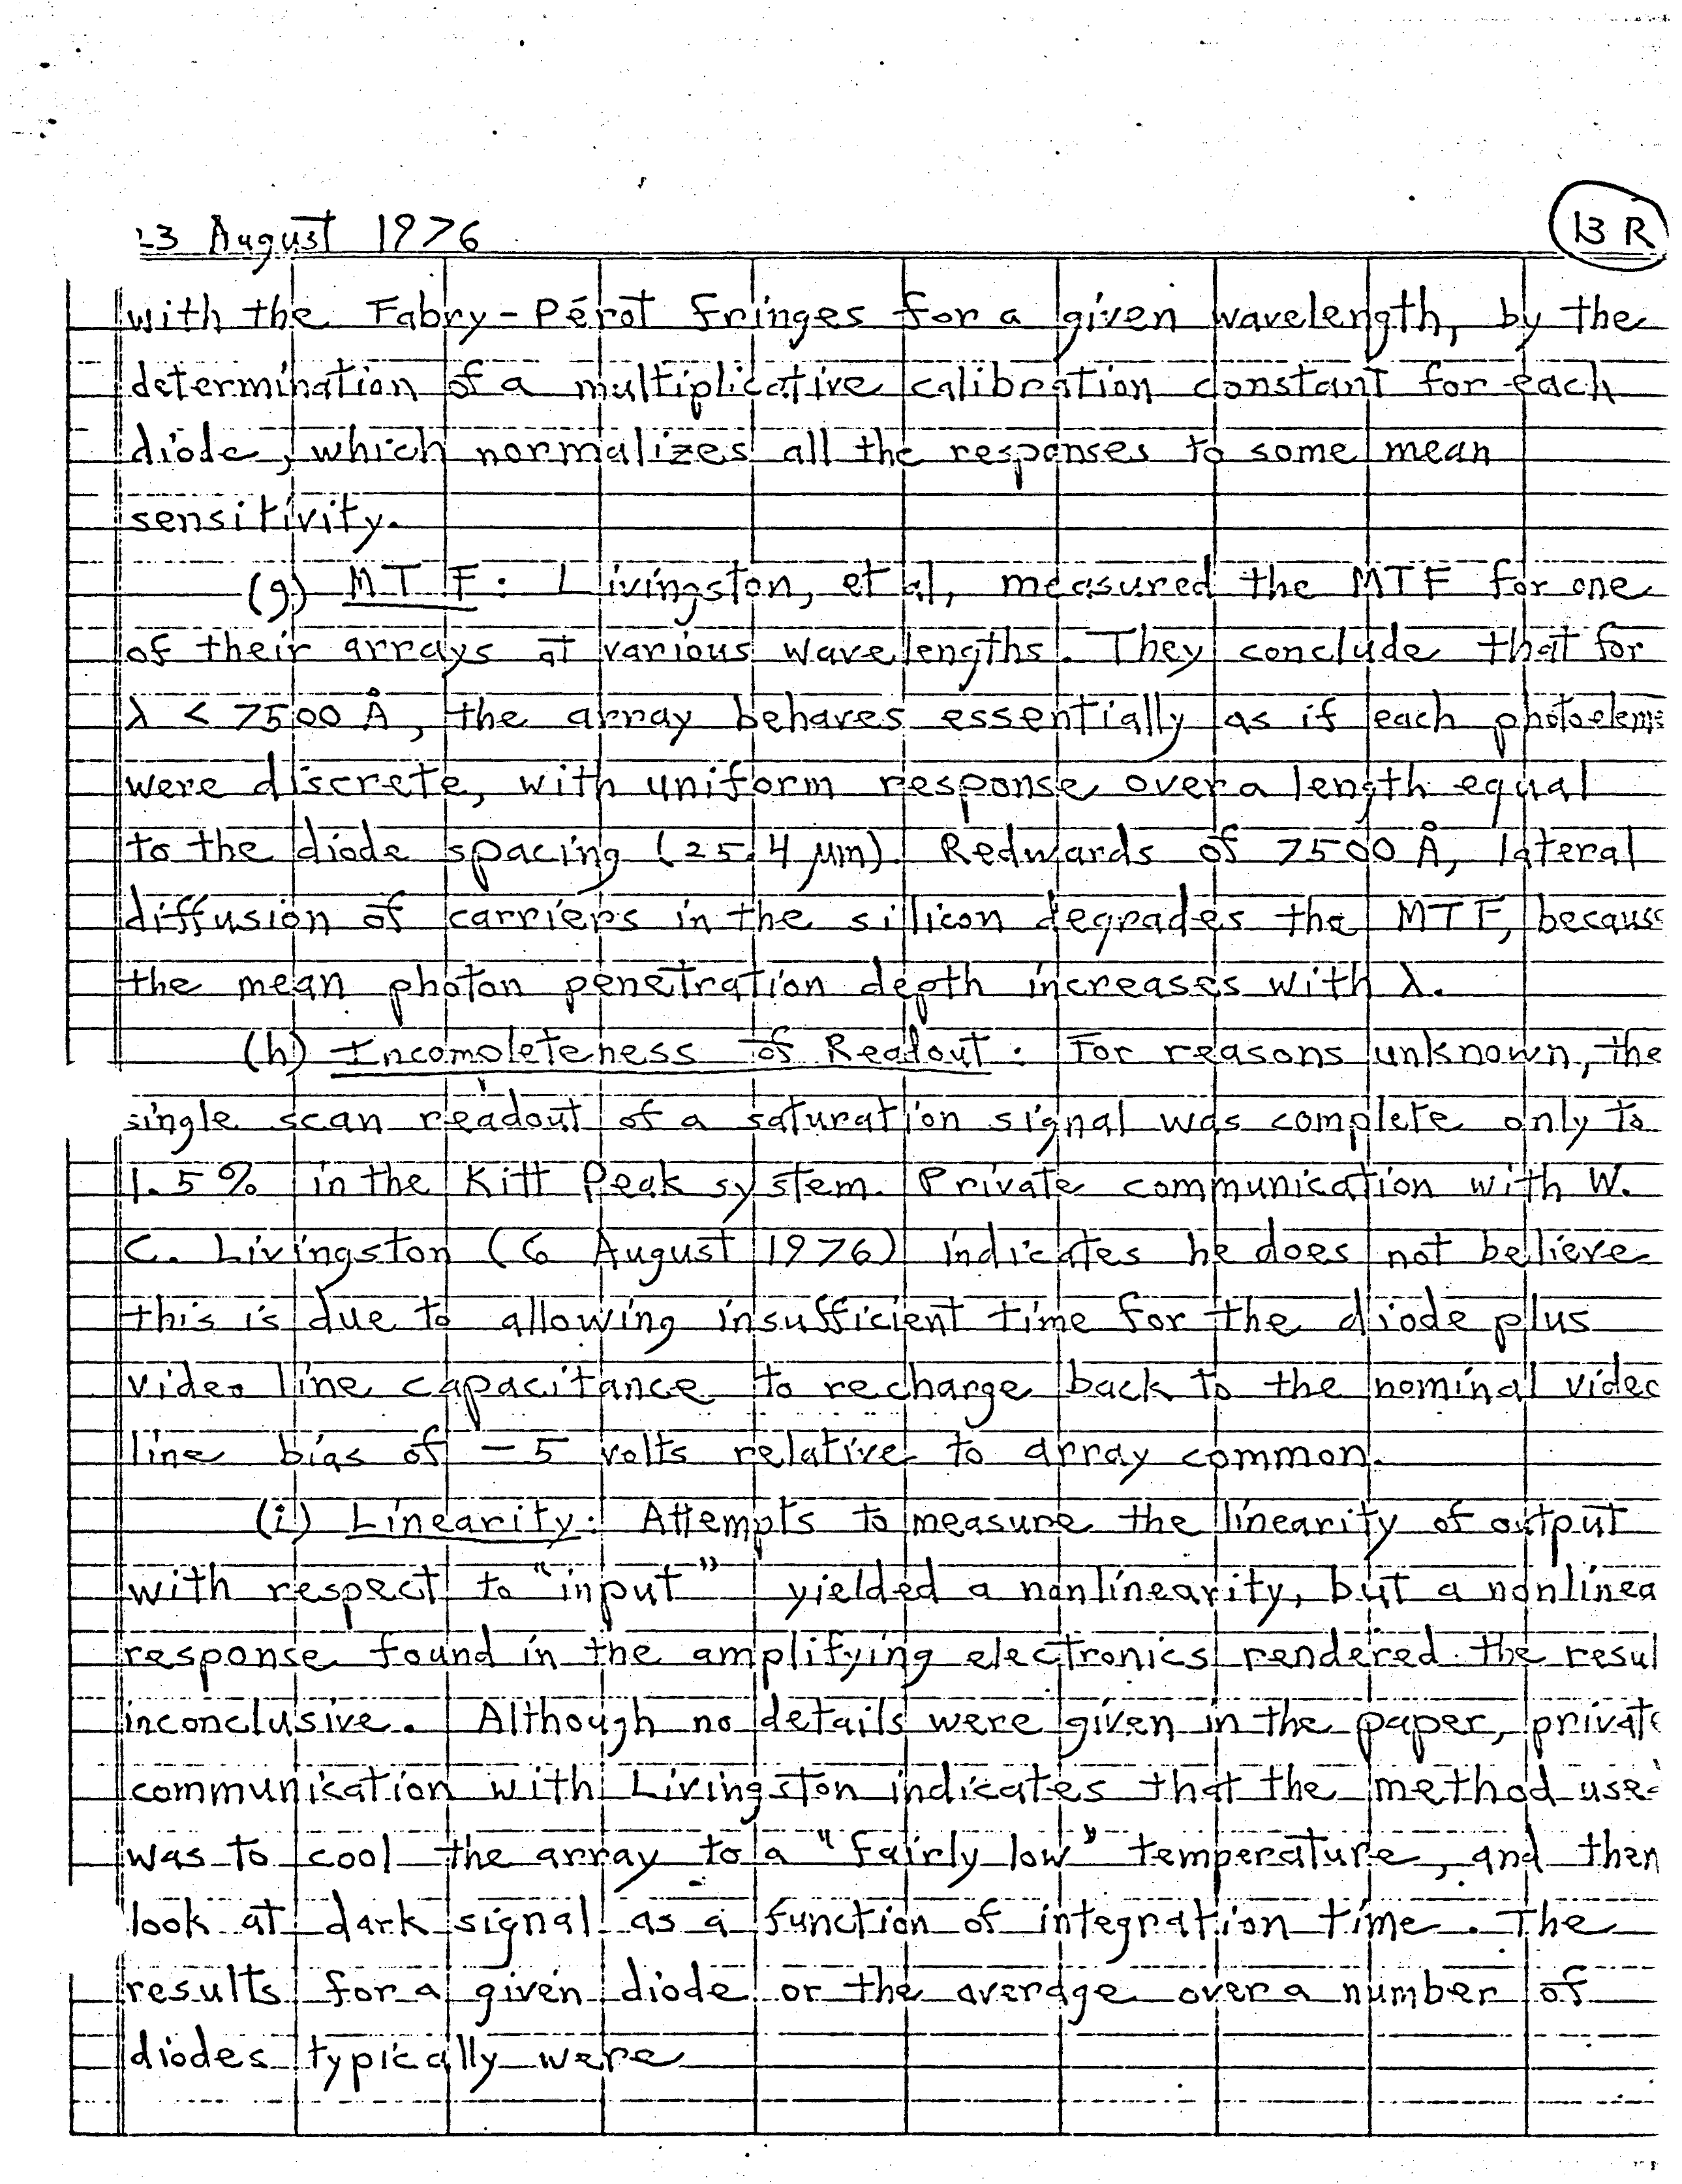 -3 August 1976
13 R
with the Fabry-Pérot Fringes for a given wavelength, by the
determination of a multiplicative calibration constant for each
diode, which normalizes all the responses to some mean
sensitivity.
(g) MTF: Livingston, et al, measured the MTF for one
of their arrays at various wavelengths. They conclude that for
λ < 7500 Å, the array behaves essentially as if each photoeleme
were discrete, with uniform response over a length equal
to the diode spacing (25.4 μm). Redwards of 7500 Å, lateral
diffusion of carriers in the silicon degrades the MTF, because
the mean photon penetration depth increases with λ.
(h) Incompleteness of Readout: For reasons unknown, the
single scan readout of a saturation signal was complete only to
1.5% in the Kitt Peak system. Private communication with W.
C. Livingston (6 August 1976) indicates he does not believe
this is due to allowing insufficient time for the diode plus
video line capacitance to recharge back to the nominal video
line bias of -5 volts relative to array common.
(i) Linearity: Attempts to measure the linearity of output
with respect to "input" yielded a nonlinearity, but a nonlinea
response found in the amplifying electronics rendered the resul
inconclusive. Although no details were given in the paper, private
communication with Livingston indicates that the method used
was to cool the array to a "fairly low" temperature, and then
look at dark signal as a function of integration time. The
results for a given diode or the average over a number of
diodes typically were